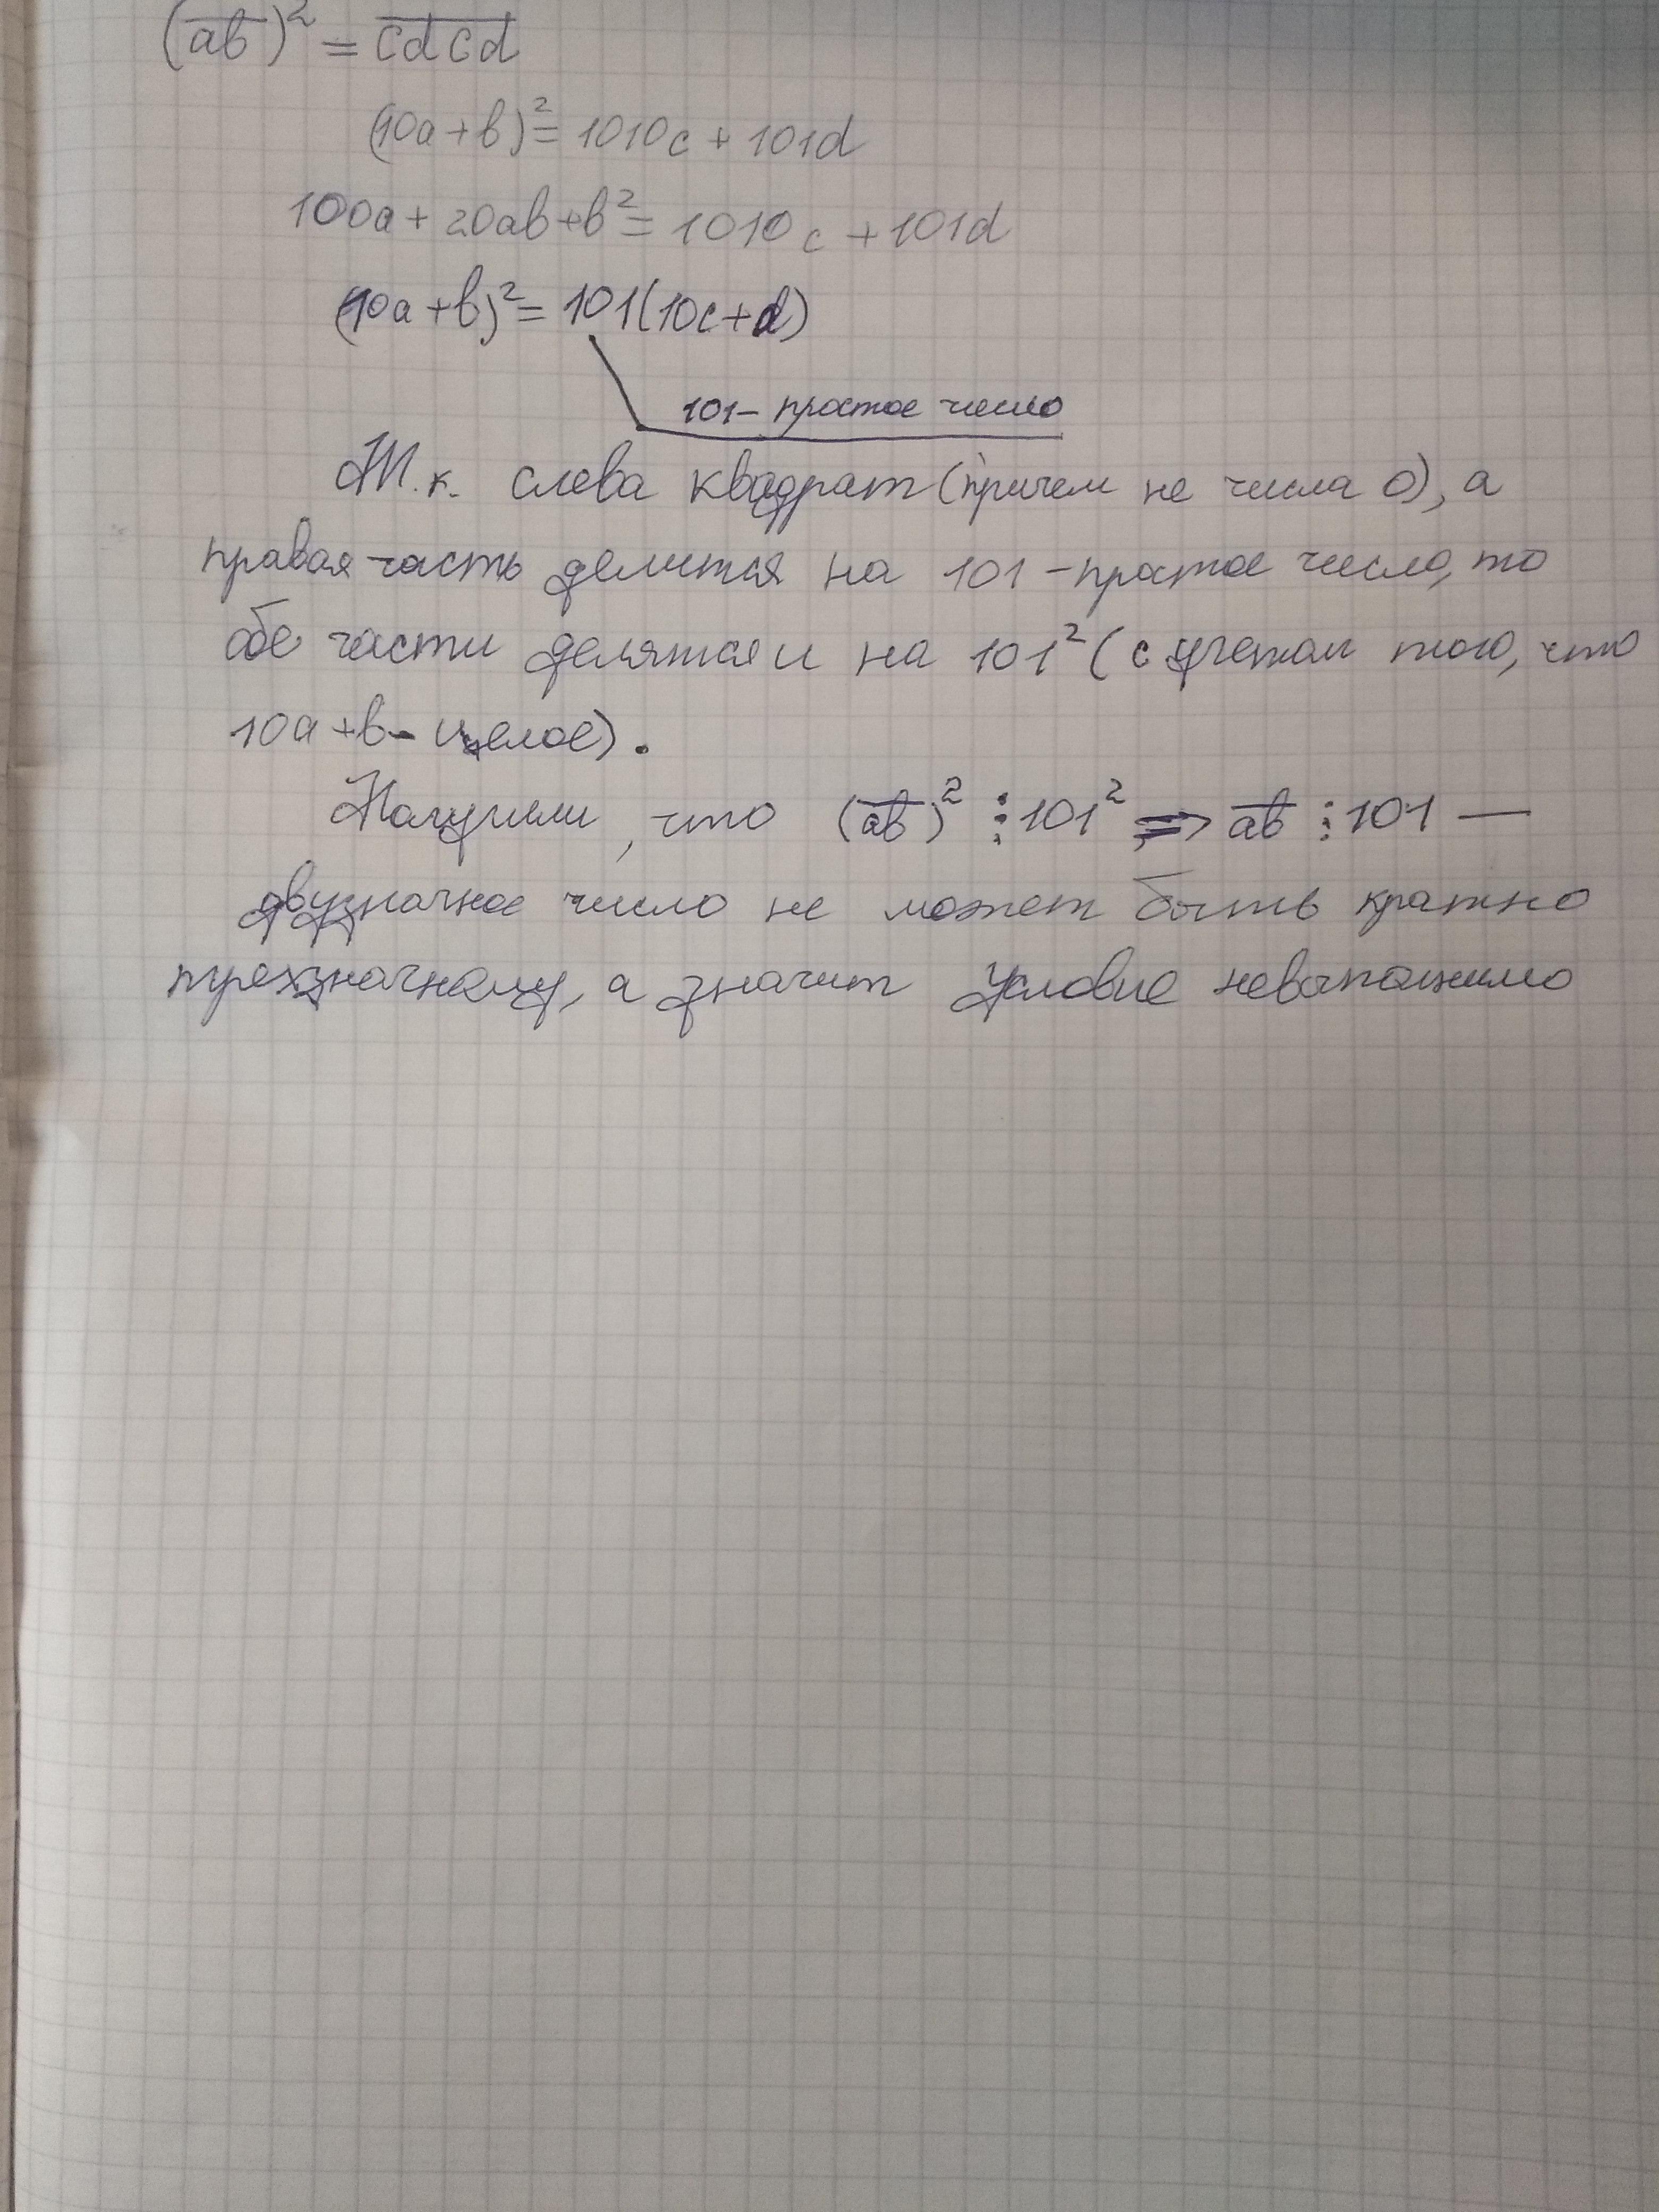 (ab)² = cdcd
(10a+b)² = 1010c + 101d
100a + 20ab + b² = 1010c + 101d
(10a+b)² = 101(10c+d)
101 – простое число
Т.к. слева квадрат (причем не числа 0), а
правая часть делится на 101 – простое число, то
обе части делятся и на 101² (с учетом того, что
10a+b – целое).
Получили, что (ab)² ⋮ 101² => ab ⋮ 101 —
двузначное число не может быть кратно
трехзначному, а значит условие невыполнимо